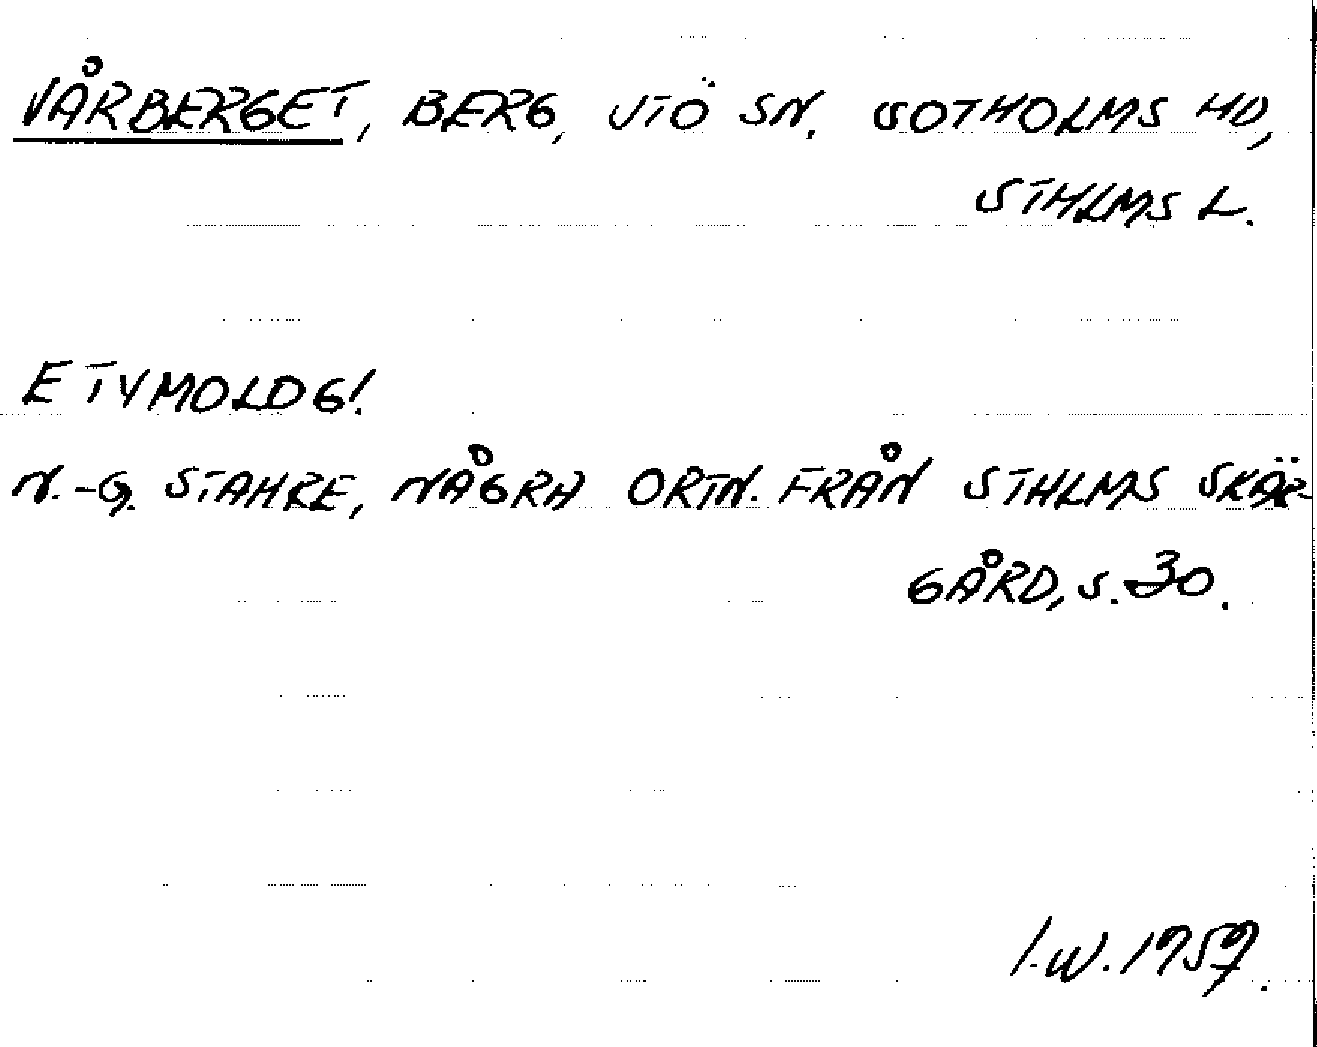 VÅRBERGET, BERG, UTÖ SN, SOTHOLMS HD,
STHLMS L.
ETYMOLOG!.
N.-G. STAHRE, NÅGRA ORTN. FRÅN STHLMS SKÄR-
GÅRD, S. 30.
I.W. 1957.